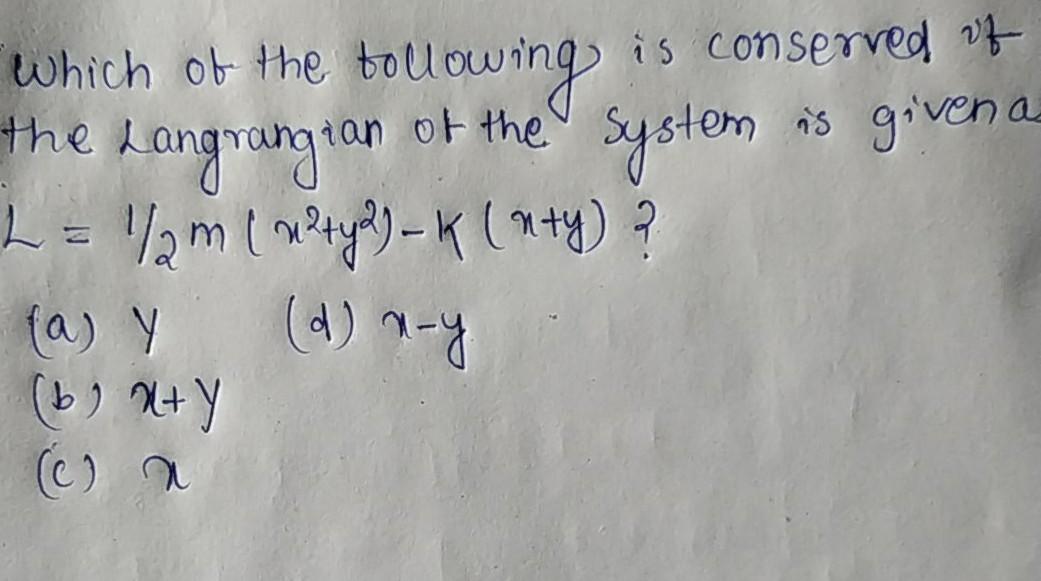 Which of the following is conserved if
the Langrangian of the system is given as
L = 1/2 m (x²+y²) - K (x+y) ?
(a) y (d) x-y
(b) x+y
(c) x